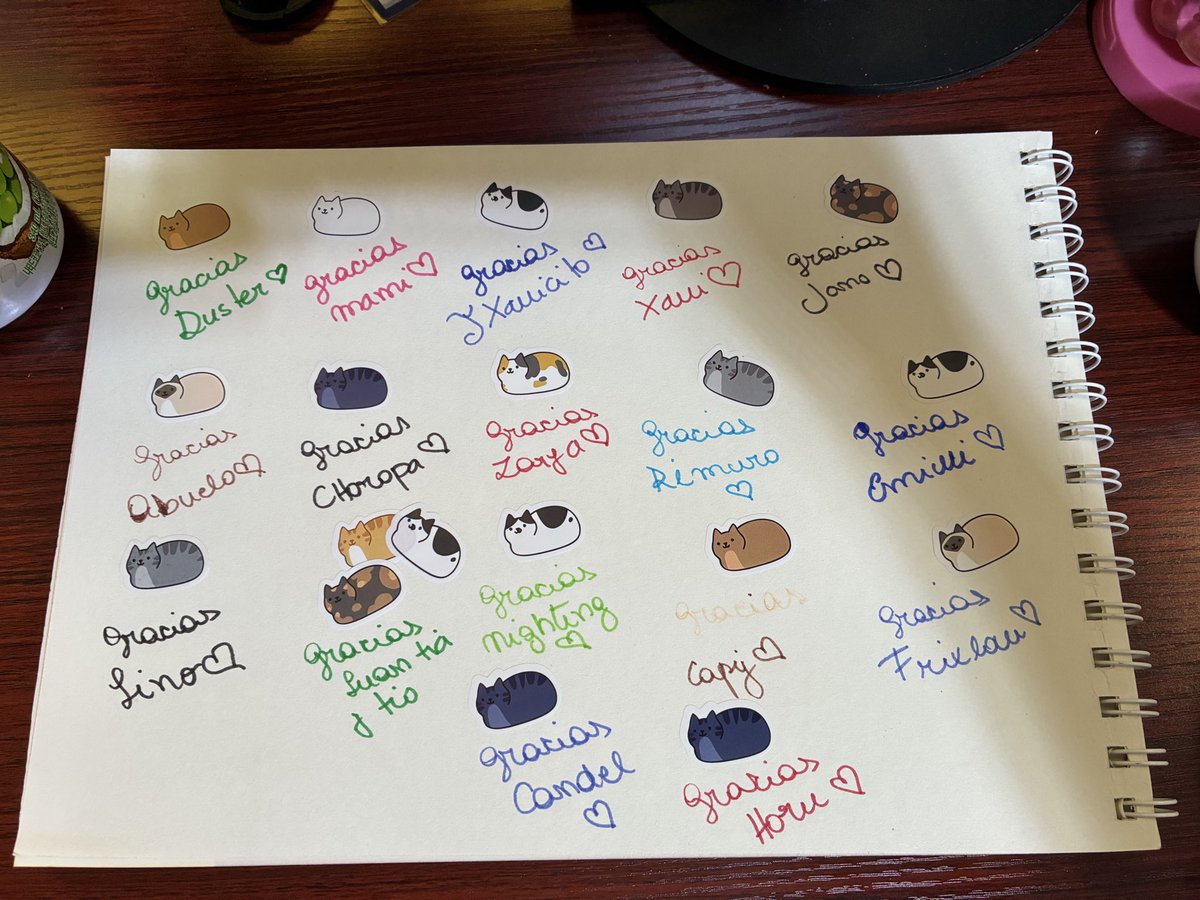 gracias
Duster ♡
gracias
mami ♡
gracias
y Xauicito ♡
gracias
Xaui ♡
gracias
Jano ♡
gracias
abuelo ♡
gracias
CHoropa ♡
gracias
Zarya ♡
gracias
Rimuro
♡
gracias
Emilli ♡
gracias
Lino ♡
gracias
Juan tia
y tio
gracias
nighting
♡
gracias
capy ♡
gracias
Frixlau ♡
gracias
Candel
♡
gracias
Horu ♡